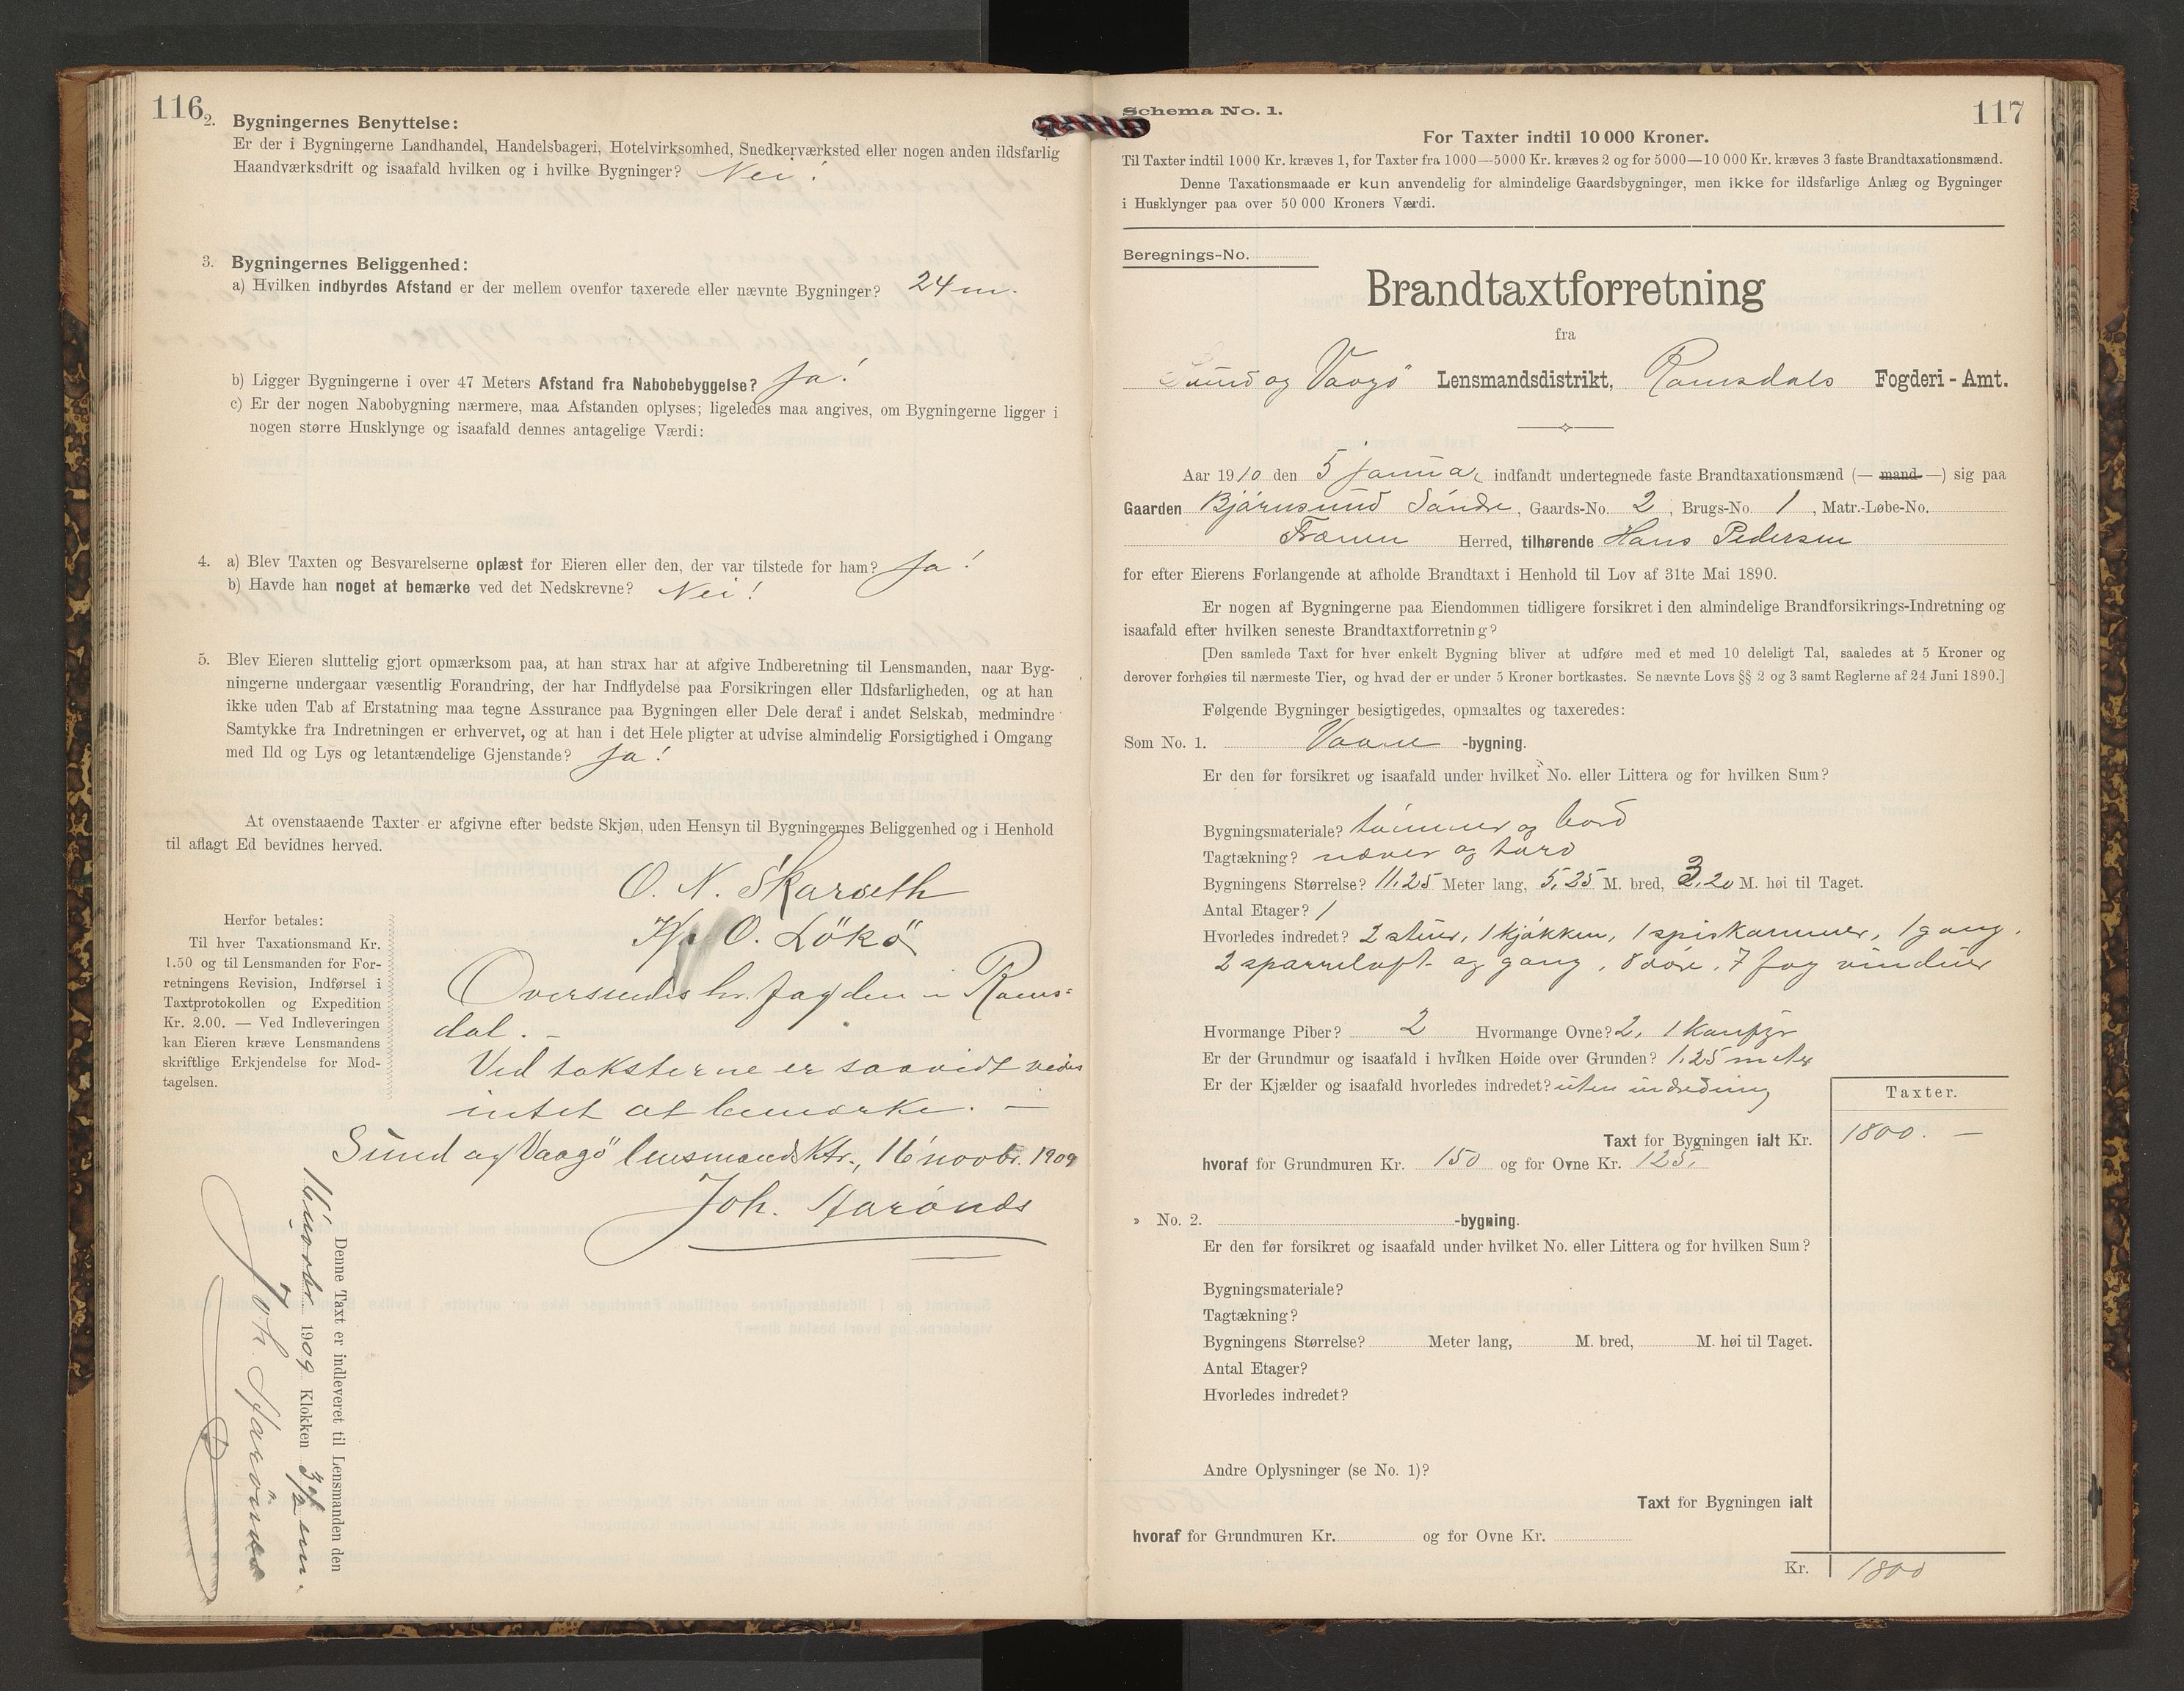 116
2. Bygningernes Benyttelse:
Er der i Bygningerne Landhandel, Handelsbageri, Hotelvirksomhed, Snedkerværksted eller nogen anden ildsfarlig
Haandværksdrift og isaafald hvilken og i hvilke Bygninger? Nei!
3. Bygningernes Beliggenhed:
a) Hvilken indbyrdes Afstand er der mellem ovenfor taxerede eller nævnte Bygninger? 24 m.
b) Ligger Bygningerne i over 47 Meters Afstand fra Nabobebyggelse? Ja!
c) Er der nogen Nabobygning nærmere, maa Afstanden oplyses; ligeledes maa angives, om Bygningerne ligger i
nogen større Husklynge og isaafald dennes antagelige Værdi:
4. a) Blev Taxten og Besvarelserne oplæst for Eieren eller den, der var tilstede for ham? Ja!
b) Havde han noget at bemærke ved det Nedskrevne? Nei!
5. Blev Eieren sluttelig gjort opmærksom paa, at han strax har at afgive Indberetning til Lensmanden, naar Byg-
ningerne undergaar væsentlig Forandring, der har Indflydelse paa Forsikringen eller Ildsfarligheden, og at han
ikke uden Tab af Erstatning maa tegne Assurance paa Bygningen eller Dele deraf i andet Selskab, medmindre
Samtykke fra Indretningen er erhvervet, og at han i det Hele pligter at udvise almindelig Forsigtighed i Omgang
med Ild og Lys og letantændelige Gjenstande? Ja!
At ovenstaaende Taxter er afgivne efter bedste Skjøn, uden Hensyn til Bygningernes Beliggenhed og i Henhold
til aflagt Ed bevidnes herved.
O. N. Skarseth
O. Lökö
Herfor betales:
Til hver Taxationsmand Kr.
1.50 og til Lensmanden for For-
retningens Revision, Indførsel i
Taxtprotokollen og Expedition
Kr. 2.00. — Ved Indleveringen
kan Eieren kræve Lensmandens
skriftlige Erkjendelse for Mod-
tagelsen.
Oversendes hr. fogden i Roms-
dal. -
Ved taksterne er saavidt vides
intet at bemærke. —
Sund og Vaagö lensmandsktr., 16 novbr. 1909
Joh. Aarönæs
Denne Taxt er indleveret til Lensmanden den
16 novbr. 1909 Klokken 3 1/2 em.
Joh. Aarönæs
117
Schema No. 1.
For Taxter indtil 10 000 Kroner.
Til Taxter indtil 1000 Kr. kræves 1, for Taxter fra 1000—5000 Kr. kræves 2 og for 5000—10 000 Kr. kræves 3 faste Brandtaxationsmænd.
Denne Taxationsmaade er kun anvendelig for almindelige Gaardsbygninger, men ikke for ildsfarlige Anlæg og Bygninger
i Husklynger paa over 50 000 Kroners Værdi.
Beregnings-No.
Brandtaxtforretning
fra
Sund og Vaagö Lensmandsdistrikt, Romsdals Fogderi - Amt.
Aar 1910 den 5 januar indfandt undertegnede faste Brandtaxationsmænd (— mand —) sig paa
Gaarden Bjørnsund Søndre, Gaards-No. 2, Brugs-No. 1, Matr.-Løbe-No.
Frænen Herred, tilhørende Hans Pedersen
for efter Eierens Forlangende at afholde Brandtaxt i Henhold til Lov af 31te Mai 1890.
Er nogen af Bygningerne paa Eiendommen tidligere forsikret i den almindelige Brandforsikrings-Indretning og
isaafald efter hvilken seneste Brandtaxtforretning?
[Den samlede Taxt for hver enkelt Bygning bliver at udføre med et med 10 deleligt Tal, saaledes at 5 Kroner og
derover forhøies til nærmeste Tier, og hvad der er under 5 Kroner bortkastes. Se nævnte Lovs §§ 2 og 3 samt Reglerne af 24 Juni 1890.]
Følgende Bygninger besigtigedes, opmaaltes og taxeredes:
Som No. 1. Vaane -bygning.
Er den før forsikret og isaafald under hvilket No. eller Littera og for hvilken Sum?
Bygningsmateriale? tømmer og bord
Tagtækning? næver og torv
Bygningens Størrelse? 11,25 Meter lang, 5,25 M. bred, 3,20 M. høi til Taget.
Antal Etager? 1
Hvorledes indredet? 2 stuer, 1 kjøkken, 1 spiskammer, 1 gang.
2 sparreloft og gang, 8 døre, 7 fag vinduer
Hvormange Piber? 2 Hvormange Ovne? 2, 1 komfyr
Er der Grundmur og isaafald i hvilken Høide over Grunden? 1,25 meter
Er der Kjælder og isaafald hvorledes indredet? uten indredning
Taxter.
Taxt for Bygningen ialt Kr. 1800. —
hvoraf for Grundmuren Kr. 150 og for Ovne Kr. 125,
» No. 2. -bygning.
Er den før forsikret og isaafald under hvilket No. eller Littera og for hvilken Sum?
Bygningsmateriale?
Tagtækning?
Bygningens Størrelse? Meter lang, M. bred, M. høi til Taget.
Antal Etager?
Hvorledes indredet?
Andre Oplysninger (se No. 1)?
Taxt for Bygningen ialt
hvoraf for Grundmuren Kr. og for Ovne Kr.
Kr. 1800